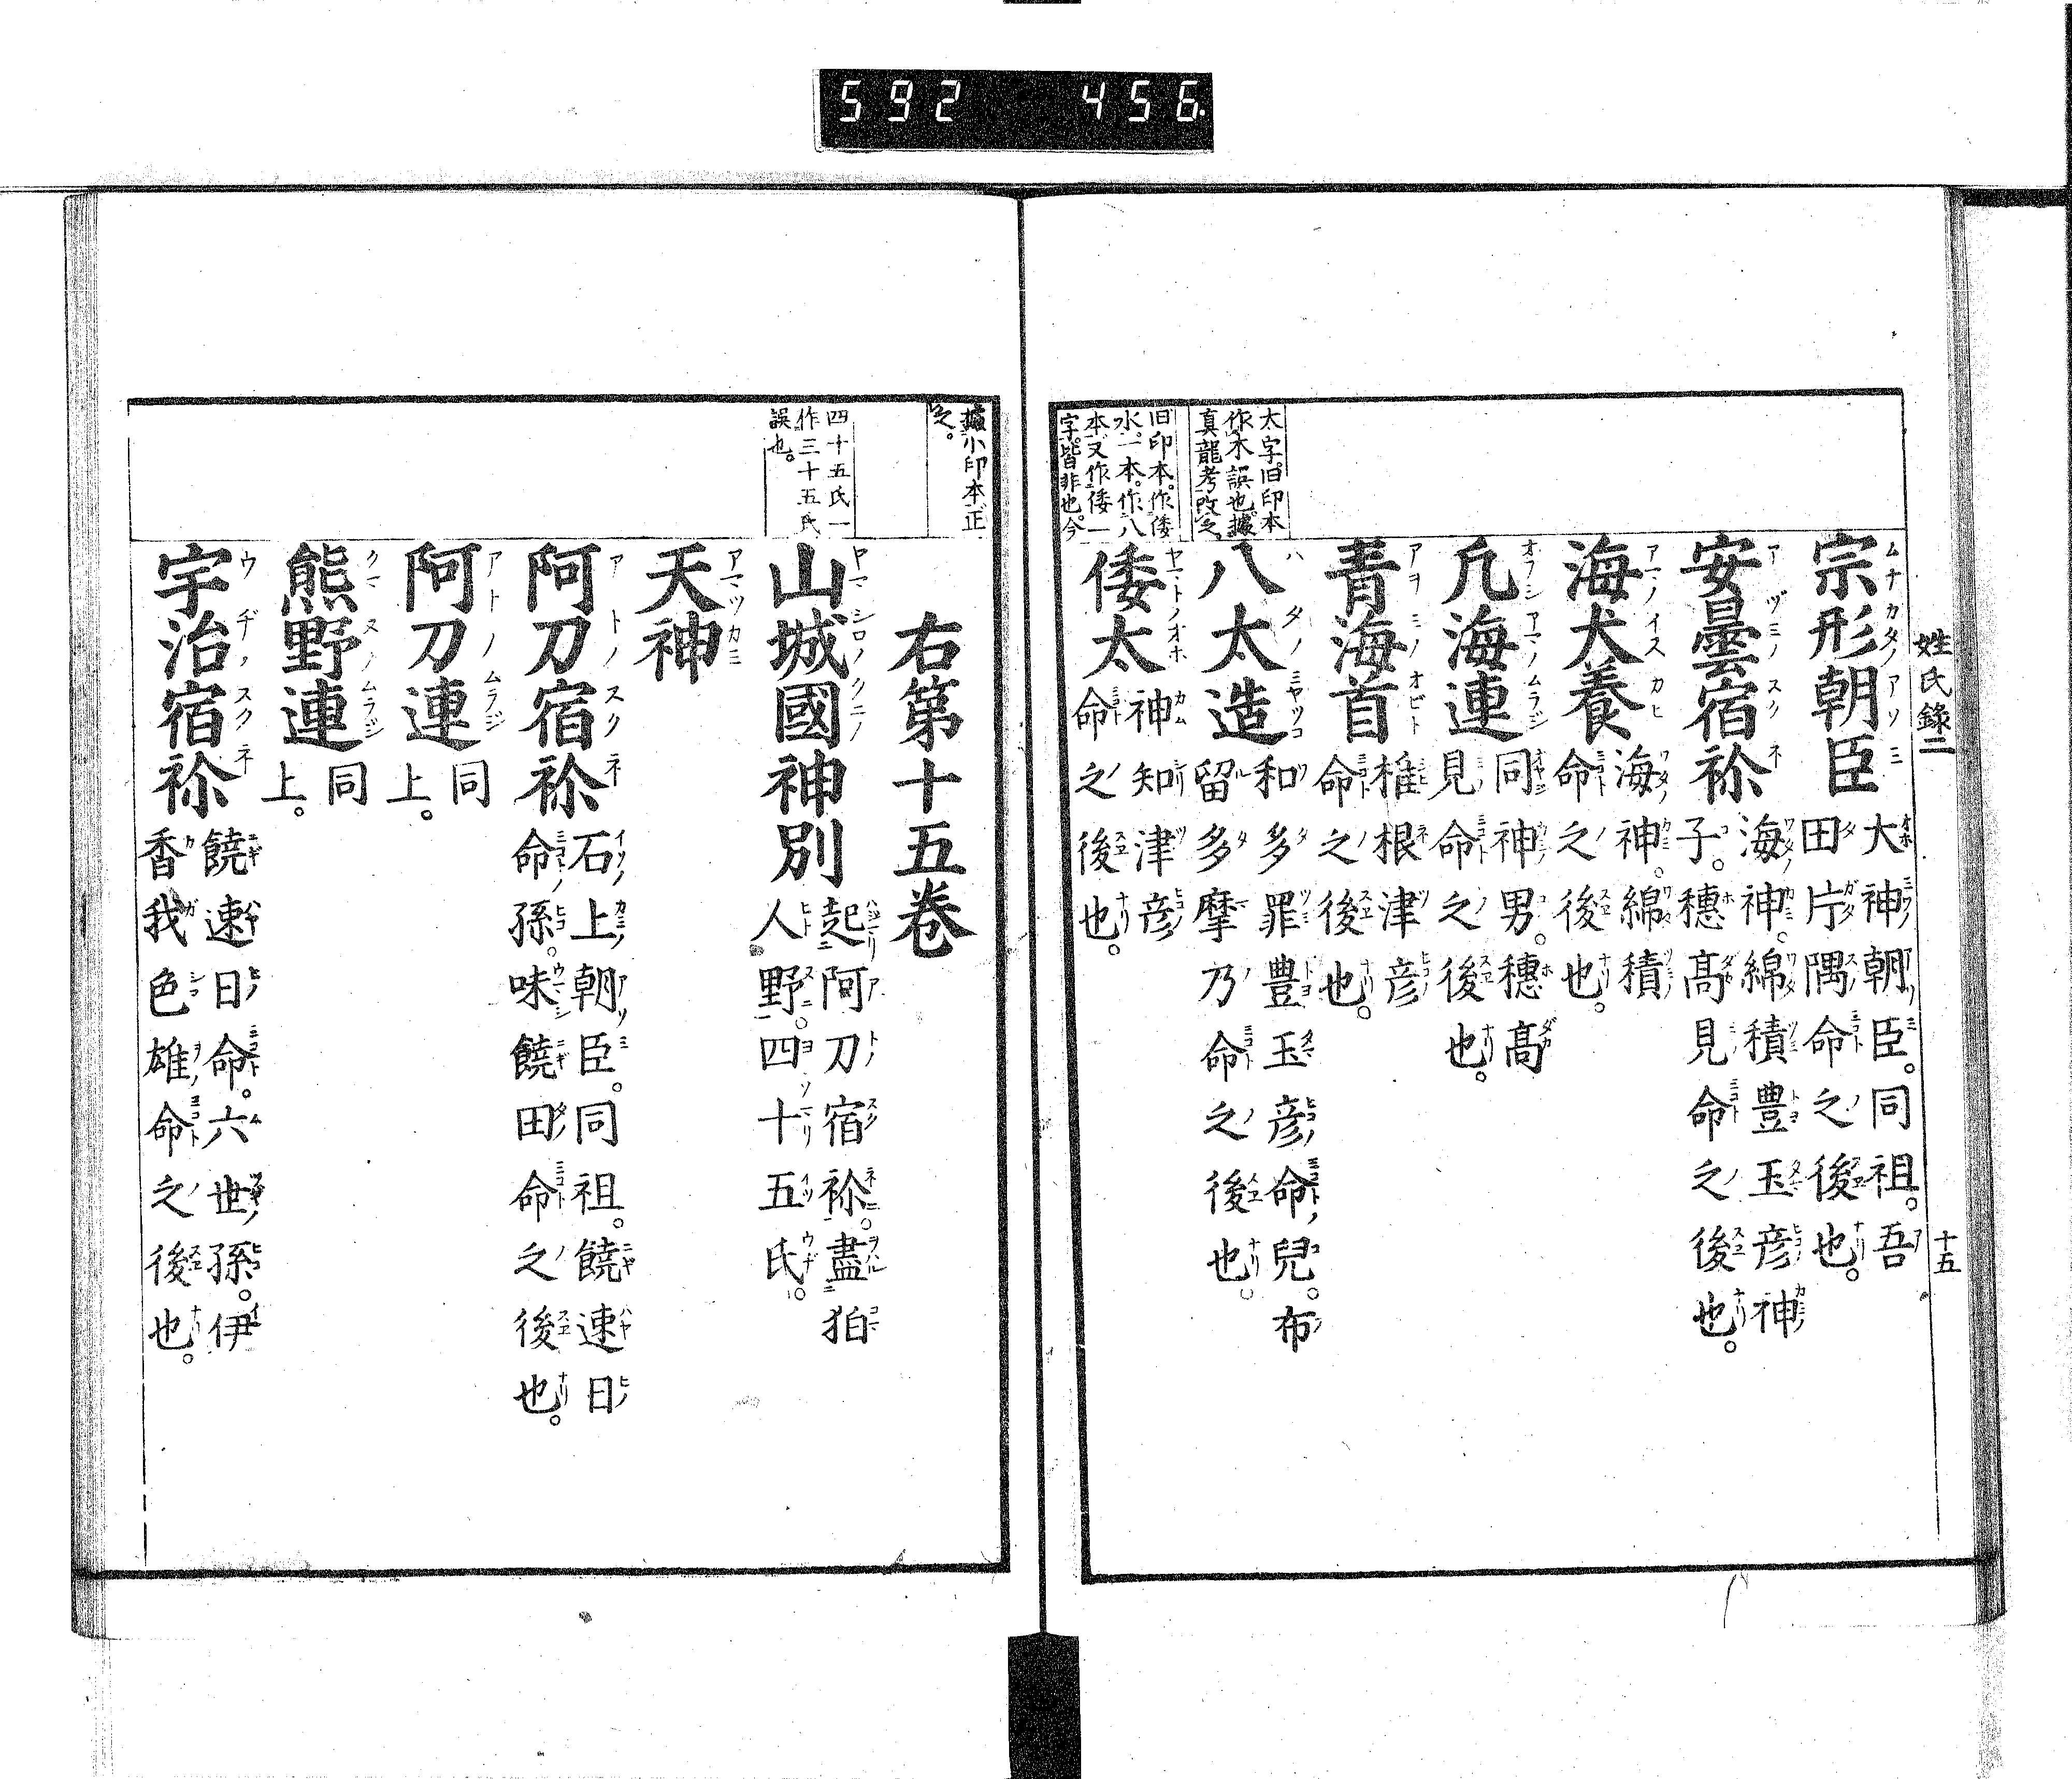 592 456
姓氏錄二
十五
宗形朝臣 大神朝臣。同祖。吾
田片隅命之後也。
安曇宿祢 海神。綿積豊玉彦神
子。穗髙見命之後也。
海犬養 海神。綿積
命之後也。
凡海連 同神男。穗髙
見命之後也。
青海首 椎根津彦
命之後也。
八太造 和多罪豊玉彦命兒。布
留多摩乃命之後也。
倭太 神知津彦
命之後也。
太字。旧印本
作木誤也。據
真龍考改之
旧印本。作倭
水。一本。作八
本又作倭一
字。皆非也。今
據小印本正
之。
右第十五巻
山城國神別 起阿刀宿祢。盡狛
人野。四十五氏。
四十五氏一
作三十五氏
誤也。
天神
阿刀宿祢 石上朝臣。同祖。饒速日
命孫。味饒田命之後也。
阿刀連 同
上。
熊野連 同
上。
宇治宿祢 饒速日命。六世孫。伊
香我色雄命之後也。